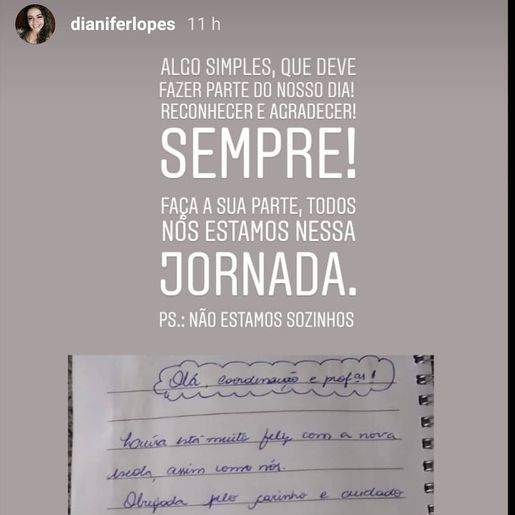 dianiferlopes 11 h
ALGO SIMPLES, QUE DEVE
FAZER PARTE DO NOSSO DIA!
RECONHECER E AGRADECER!
SEMPRE!
FAÇA A SUA PARTE, TODOS
NÓS ESTAMOS NESSA
JORNADA.
PS.: NÃO ESTAMOS SOZINHOS
Olá, coordenação e profas!
Louisa está muito feliz com a nova
escola, assim como nós.
Obrigada pelo carinho e cuidado